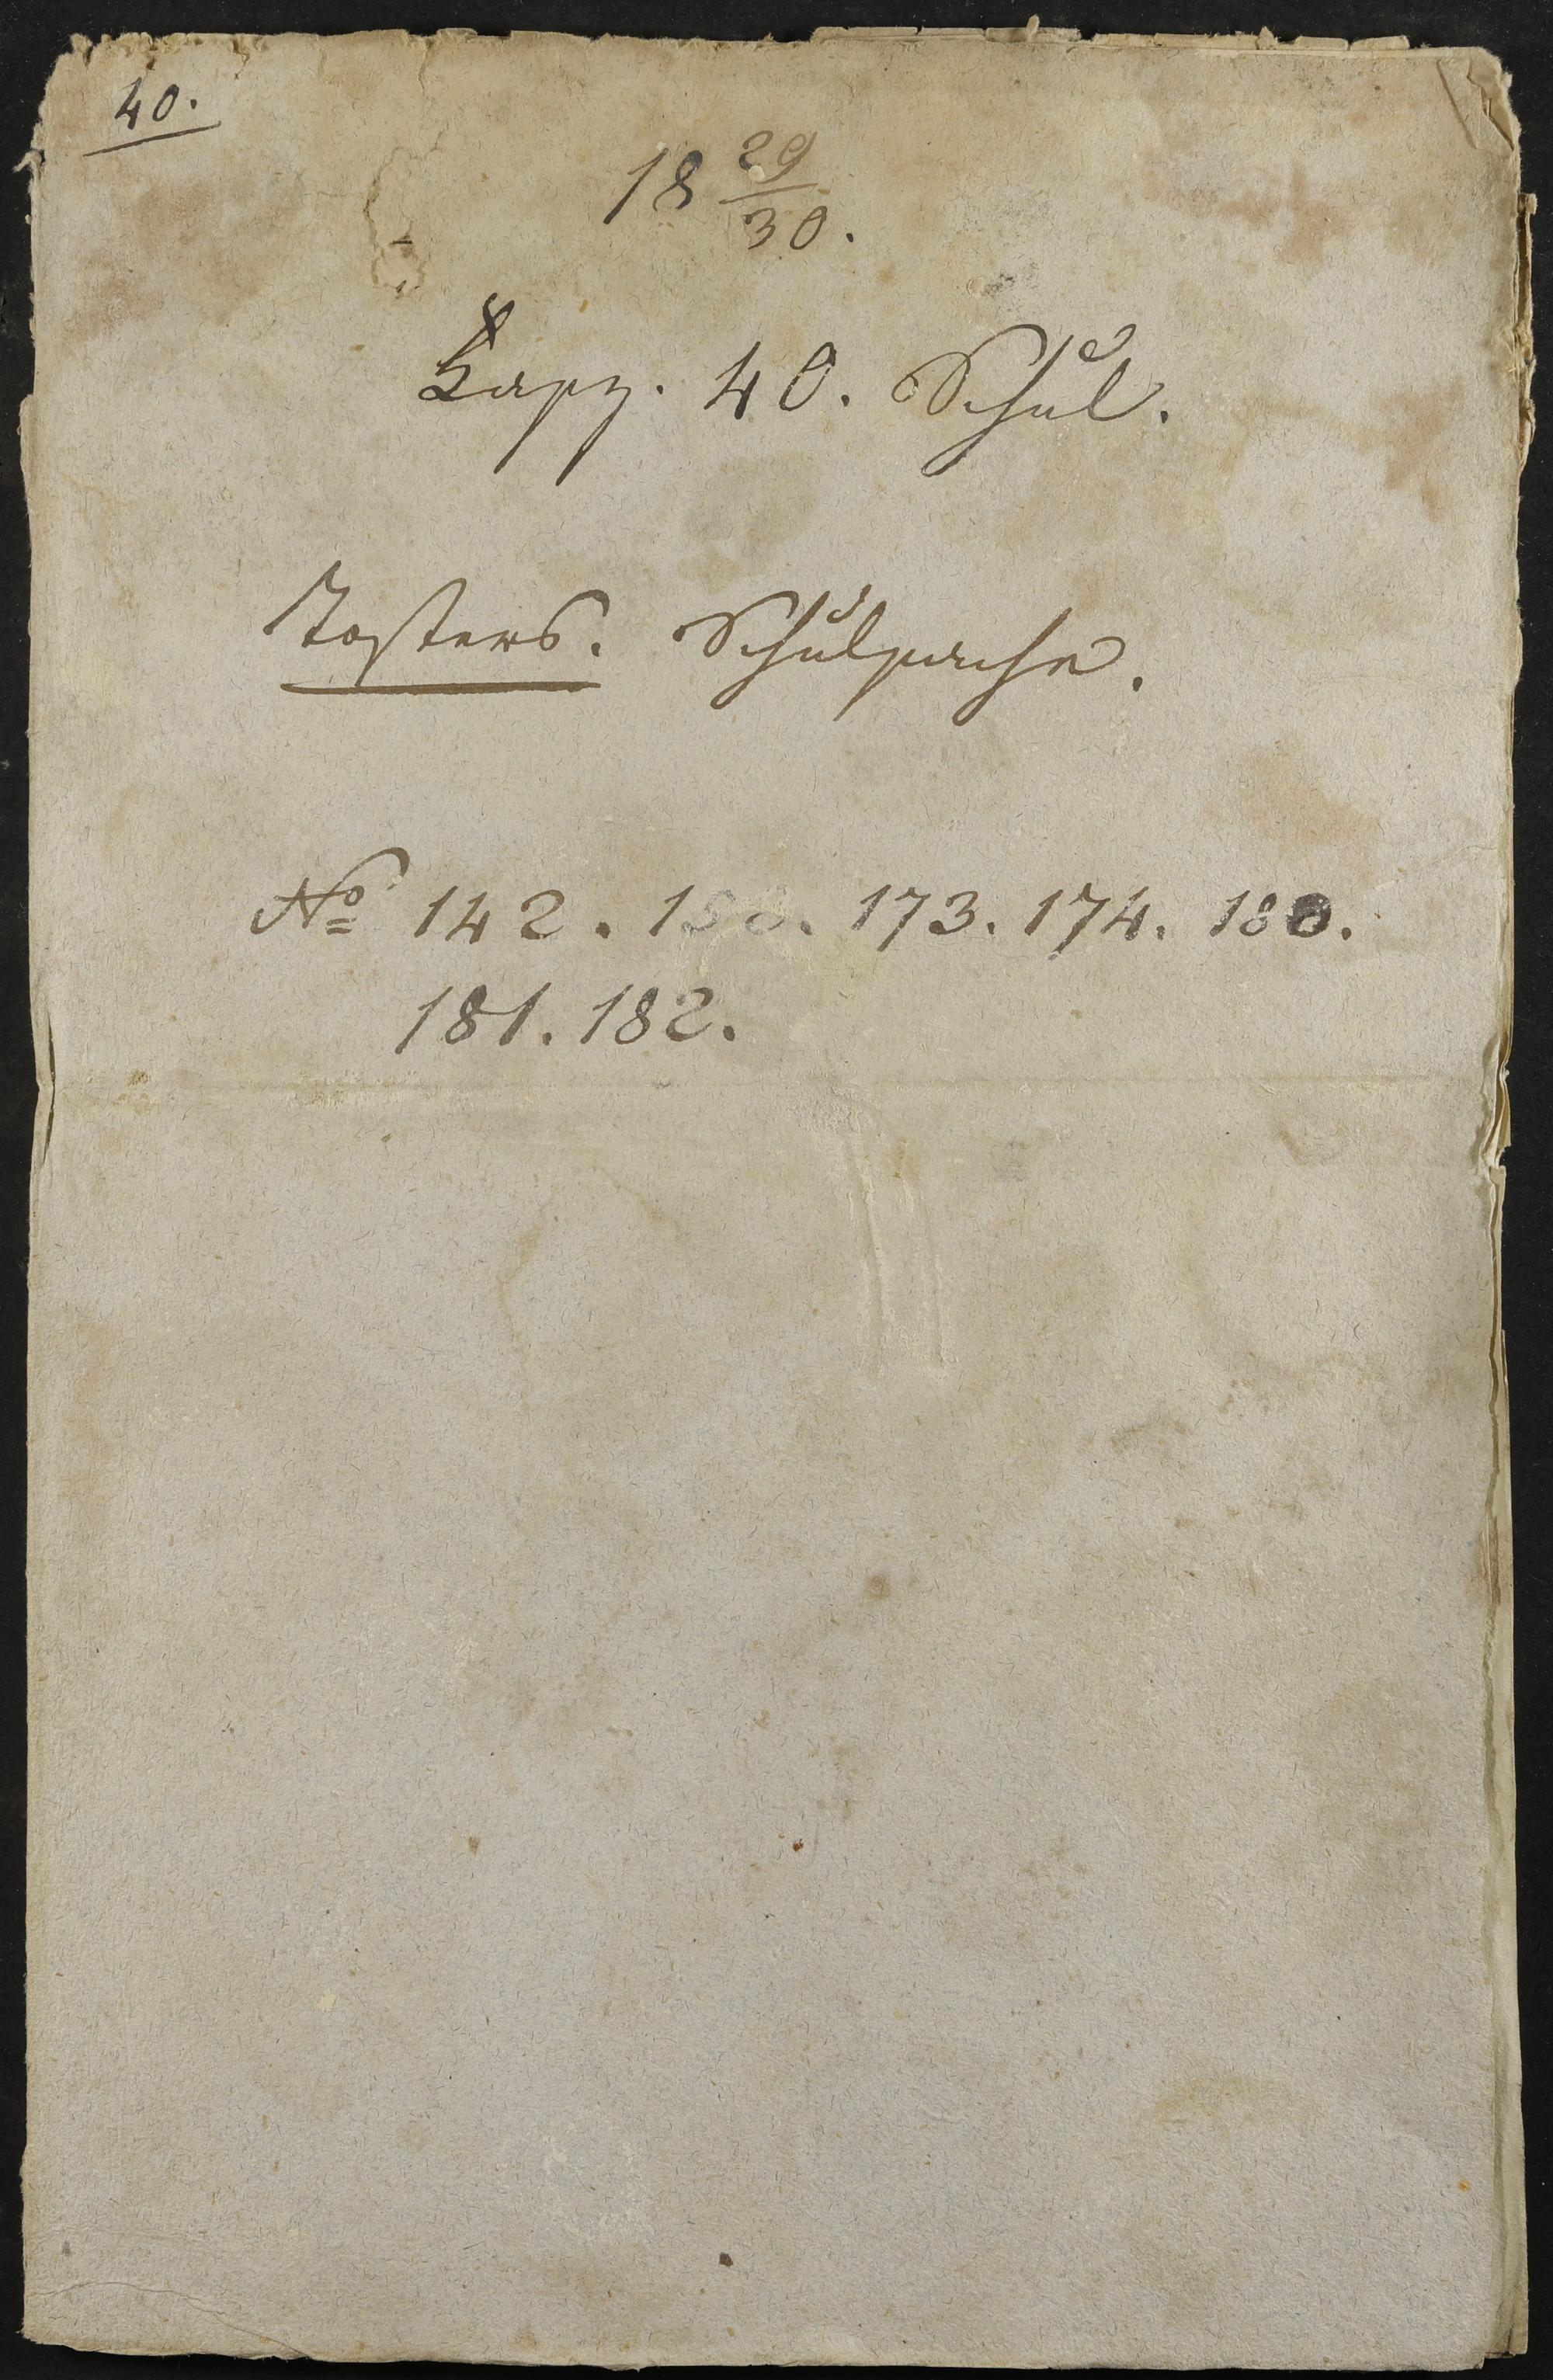 40.
18 29/30.
Fasz. 40. Schul.
Tosters. Schulsache.
No 142. 173. 174. 180.
181. 182.